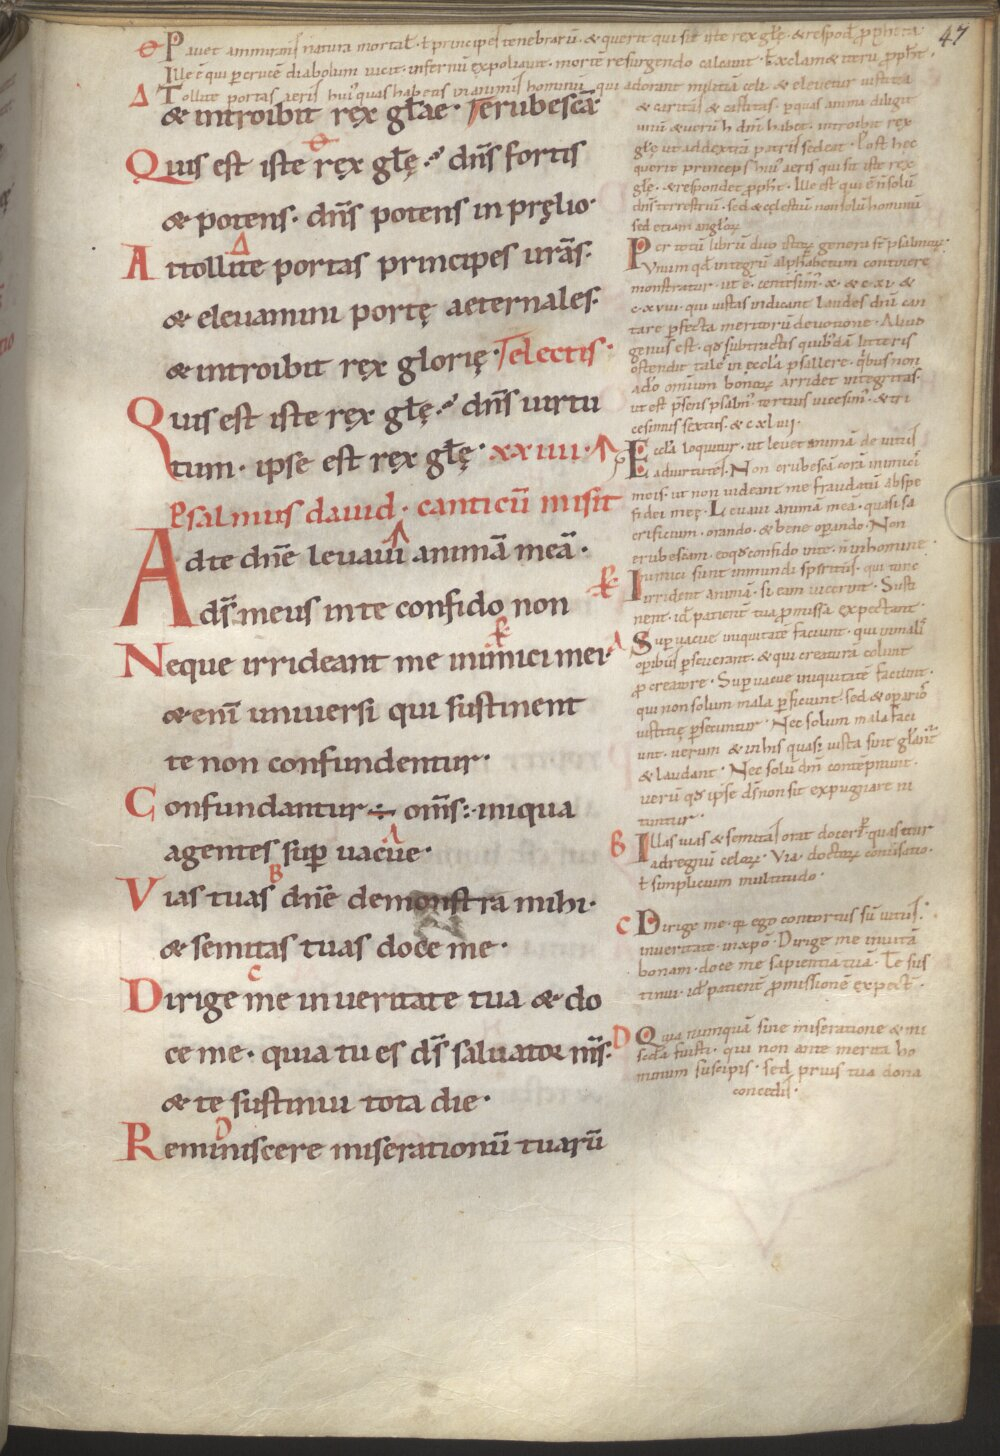 47
Pauet ammirans natura mortał. ł principes tenebrarū. & querit qui sit iste rex głę. & respoñ ꝓpheta
Ille ē qui p crucē diabolum uicit. infernū expoliauit. mortē resurgendo calcauit. Exclamæ iterū ꝓph̄.
Δ Tollite portas aeris hui' quas habens in animis hominū, qui adorant militiā celi. & eleuetur iustitia
& introibit rex głae. Ierubescā
Quis est iste rex głę. dn̄s fortis
& potens. dn̄s potens in pręlio.
Attollite portas principes ur̄as.
Δ
& eleuamini portę aeternales.
& introibit rex glorię. Ielectis.
Quis est iste rex głę. dn̄s uirtu
tum. ipse est rex głę. xxiiii.
Psalmus dauid. canticū misit
Ad te dn̄e leuaui animā meā.
ds̄ meus in te confido non
Neque irrideant me inimici mei
& eni uniuersi qui sustinent
te non confundentur.
Confundantur ÷ om̄s: iniqua
agentes sup uacue.
A
Vias tuas dn̄e demonstra mihi.
B
& semitas tuas doce me.
Dirige me in ueritate tua & do
C
ce me. quia tu es ds̄ saluator m̄s.
& te sustinui tota die.
Reminiscere miserationū tuarū
D
& caritas & castitas. p quas anima diligit
unū & uerū h dn̄m habet. introibit rex
głę ut ad dextrā patris sedeat. Post hec
querit princeps hui' aeris qui sit iste rex
głę. & respondet ꝓph̄. Ille est qui ē n̄ solū
dn̄s terrestriū. sed & celestiū non solū hominū
sed etiam angloꝝ
Per totū librū duo istaꝝ genera st̄ psalmoꝝ.
Vnum qđ integrū alphabetum continere
monstratur. ut ē. centesim'. x. & c.xi. &
c.xviii. qui iustas indicant laudes dn̄ū can
tare pfecta meritorū deuotione. Aliud
genus est. qđ subtractis quib'dā litteris
ostendit tale' in eccła psallere. qibus non
ad'o omium bonoꝝ arridet integritas.
ut est psens psalm'. tertius uicesim'. & tri
cesimus sextus. & c xliiii.
Eccła loquitur. ut leuet animā de uitiis
ad uirtutes. Non erubescā corā inimicis
meis. ut non uideant me fraudatū ab spe
fidei meę. Leuaui animā meā. quasi sa
crificium. orando. & bene opando. Non
erubescam. eo qđ confido in te. n̄ in homine.
Inimici sunt inmundi spiritus. qui tunc
irrident animā. si eam uicerint. Susti
nent. id patient tua ꝓmissa expectant.
A Supuacue iniquitatē faciunt. qui in mali
opibus pseuerant. & qui creaturā colunt
ꝓ creatore. Supuacue iniquitatē faciunt.
qui non solum mala pficiunt. sed & oparios
iustitię psecuntur. Nec solum mala faci
unt. uerum & in his quasi iusta sint głant
& laudant. Nec solū dn̄ contēpnunt.
uerū qđ ipse ds̄ non sit expugnare ni
tuntur.
B Illas uias & semitas orat docer' quas etur
ad regnū celoꝝ. Via. doctoꝝ conuersatio.
ł simplicium multitudo.
C Dirige me. qr ego contortus sū uitiis.
in ueritate. in xp̄o. Dirige me in uitā
bonam. doce me sapientiā tuā. Te sus
tinui. id patient ꝓmissionē expect.
D Quia numquā sine miseratione & mi
scđia fuisti. qui non ante merita ho
minum suscipis. sed prius tua dona
concedis.